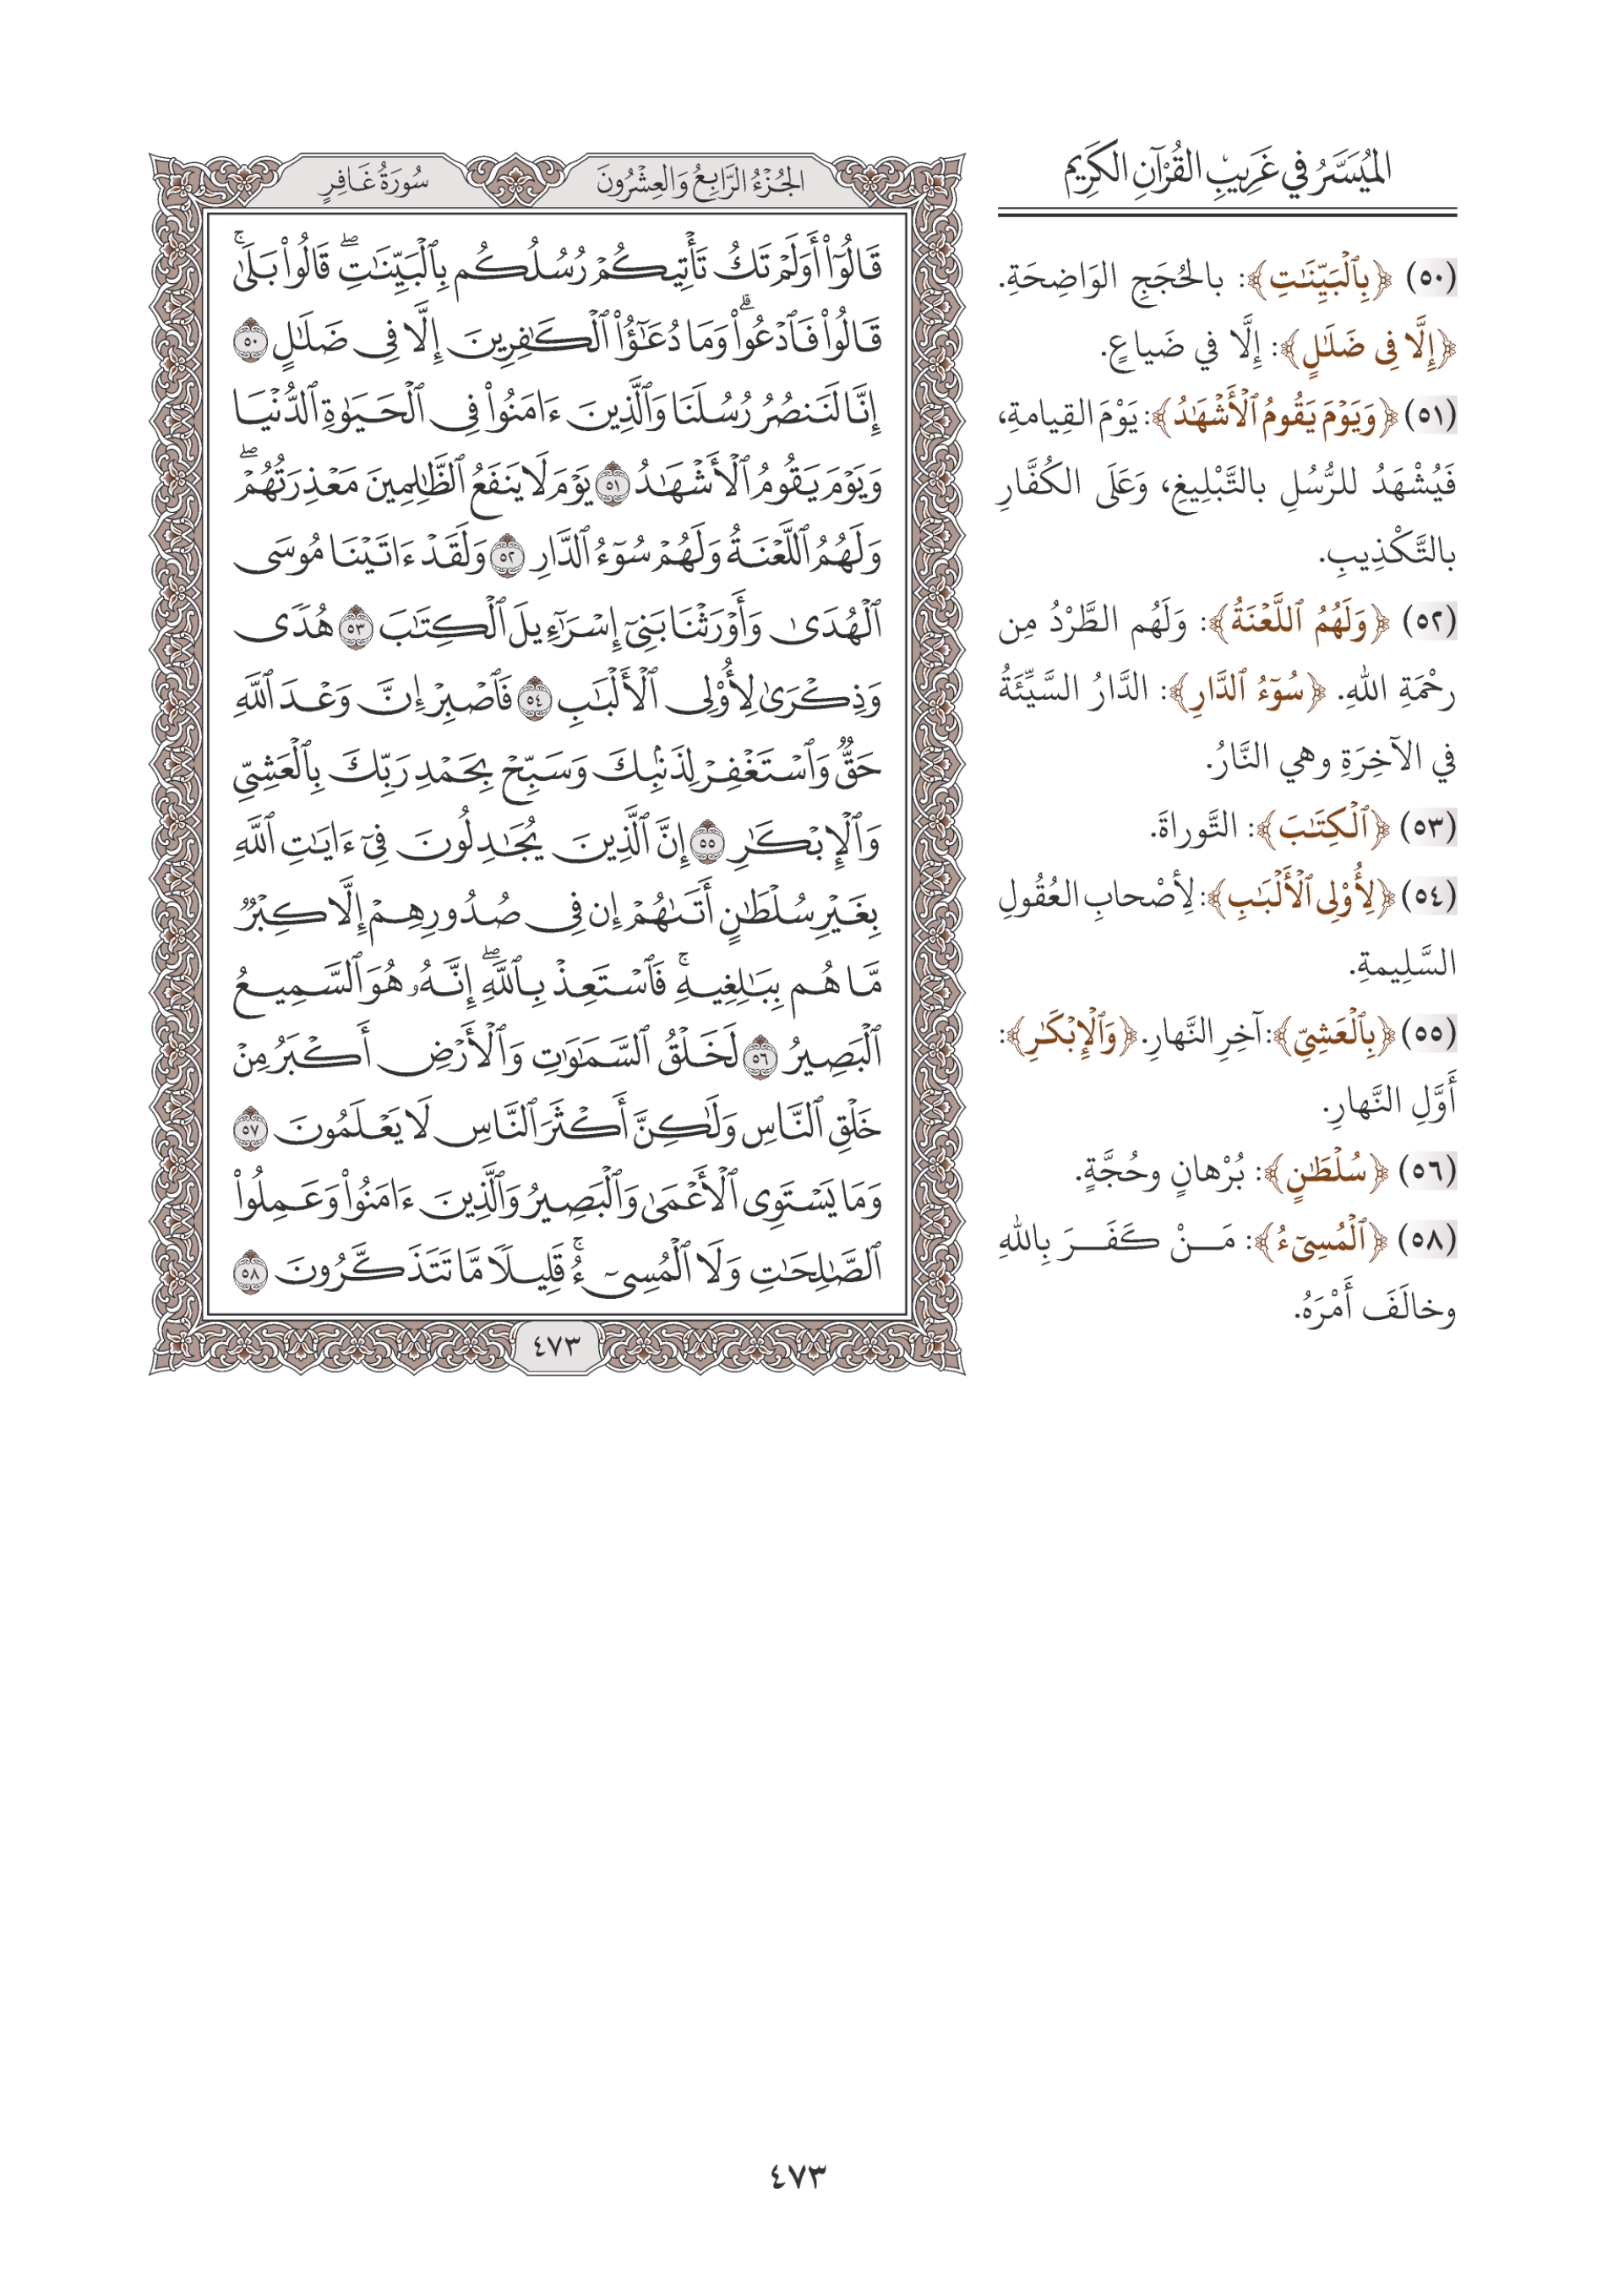 المُيَسَّرُ في غَرِيبِ القُرْآنِ الكَرِيم
(٥٠) ﴿بِٱلْبَيِّنَٰتِ﴾: بالحُجَجِ الوَاضِحَةِ.
﴿إِلَّا فِى ضَلَٰلٍ﴾: إِلَّا في ضَياعٍ.
(٥١) ﴿وَيَوْمَ يَقُومُ ٱلْأَشْهَٰدُ﴾: يَوْمَ القِيامةِ،
فَيُشْهَدُ للرُّسُلِ بالتَّبْلِيغِ، وَعَلَى الكُفَّارِ
بالتَّكْذِيبِ.
(٥٢) ﴿وَلَهُمُ ٱللَّعْنَةُ﴾: وَلَهُم الطَّرْدُ مِن
رحْمَةِ اللهِ. ﴿سُوٓءُ ٱلدَّارِ﴾: الدَّارُ السَّيِّئَةُ
في الآخِرَةِ وهي النَّارُ.
(٥٣) ﴿ٱلْكِتَٰبَ﴾: التَّوراةَ.
(٥٤) ﴿لِأُو۟لِى ٱلْأَلْبَٰبِ﴾: لِأصْحابِ العُقُولِ
السَّلِيمةِ.
(٥٥) ﴿بِٱلْعَشِىِّ﴾: آخِرِ النَّهارِ. ﴿وَٱلْإِبْكَٰرِ﴾:
أَوَّلِ النَّهارِ.
(٥٦) ﴿سُلْطَٰنٍ﴾: بُرْهانٍ وحُجَّةٍ.
(٥٨) ﴿ٱلْمُسِىٓءُ﴾: مَــنْ كَفَــرَ بِاللهِ
وخالَفَ أَمْرَهُ.
الجُزْءُ الرَّابِعُ وَالعِشْرُونَ
سُورَةُ غَافِرٍ
قَالُوٓا۟ أَوَلَمْ تَكُ تَأْتِيكُمْ رُسُلُكُم بِٱلْبَيِّنَٰتِۖ قَالُوا۟ بَلَىٰۚ
قَالُوا۟ فَٱدْعُوا۟ۗ وَمَا دُعَٰٓؤُا۟ ٱلْكَٰفِرِينَ إِلَّا فِى ضَلَٰلٍ ٥٠
إِنَّا لَنَنصُرُ رُسُلَنَا وَٱلَّذِينَ ءَامَنُوا۟ فِى ٱلْحَيَوٰةِ ٱلدُّنْيَا
وَيَوْمَ يَقُومُ ٱلْأَشْهَٰدُ ٥١ يَوْمَ لَا يَنفَعُ ٱلظَّٰلِمِينَ مَعْذِرَتُهُمْۖ
وَلَهُمُ ٱللَّعْنَةُ وَلَهُمْ سُوٓءُ ٱلدَّارِ ٥٢ وَلَقَدْ ءَاتَيْنَا مُوسَى
ٱلْهُدَىٰ وَأَوْرَثْنَا بَنِىٓ إِسْرَٰٓءِيلَ ٱلْكِتَٰبَ ٥٣ هُدًى
وَذِكْرَىٰ لِأُو۟لِى ٱلْأَلْبَٰبِ ٥٤ فَٱصْبِرْ إِنَّ وَعْدَ ٱللَّهِ
حَقٌّ وَٱسْتَغْفِرْ لِذَنۢبِكَ وَسَبِّحْ بِحَمْدِ رَبِّكَ بِٱلْعَشِىِّ
وَٱلْإِبْكَٰرِ ٥٥ إِنَّ ٱلَّذِينَ يُجَٰدِلُونَ فِىٓ ءَايَٰتِ ٱللَّهِ
بِغَيْرِ سُلْطَٰنٍ أَتَىٰهُمْ إِن فِى صُدُورِهِمْ إِلَّا كِبْرٌ
مَّا هُم بِبَٰلِغِيهِۚ فَٱسْتَعِذْ بِٱللَّهِۖ إِنَّهُۥ هُوَ ٱلسَّمِيعُ
ٱلْبَصِيرُ ٥٦ لَخَلْقُ ٱلسَّمَٰوَٰتِ وَٱلْأَرْضِ أَكْبَرُ مِنْ
خَلْقِ ٱلنَّاسِ وَلَٰكِنَّ أَكْثَرَ ٱلنَّاسِ لَا يَعْلَمُونَ ٥٧
وَمَا يَسْتَوِى ٱلْأَعْمَىٰ وَٱلْبَصِيرُ وَٱلَّذِينَ ءَامَنُوا۟ وَعَمِلُوا۟
ٱلصَّٰلِحَٰتِ وَلَا ٱلْمُسِىٓءُۚ قَلِيلًا مَّا تَتَذَكَّرُونَ ٥٨
٤٧٣
٤٧٣